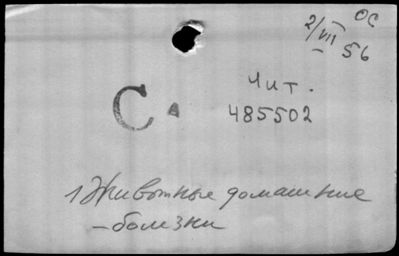 2/VII 56 ОС
Чит.
С.
485502
1 Животные домашние
- болезни